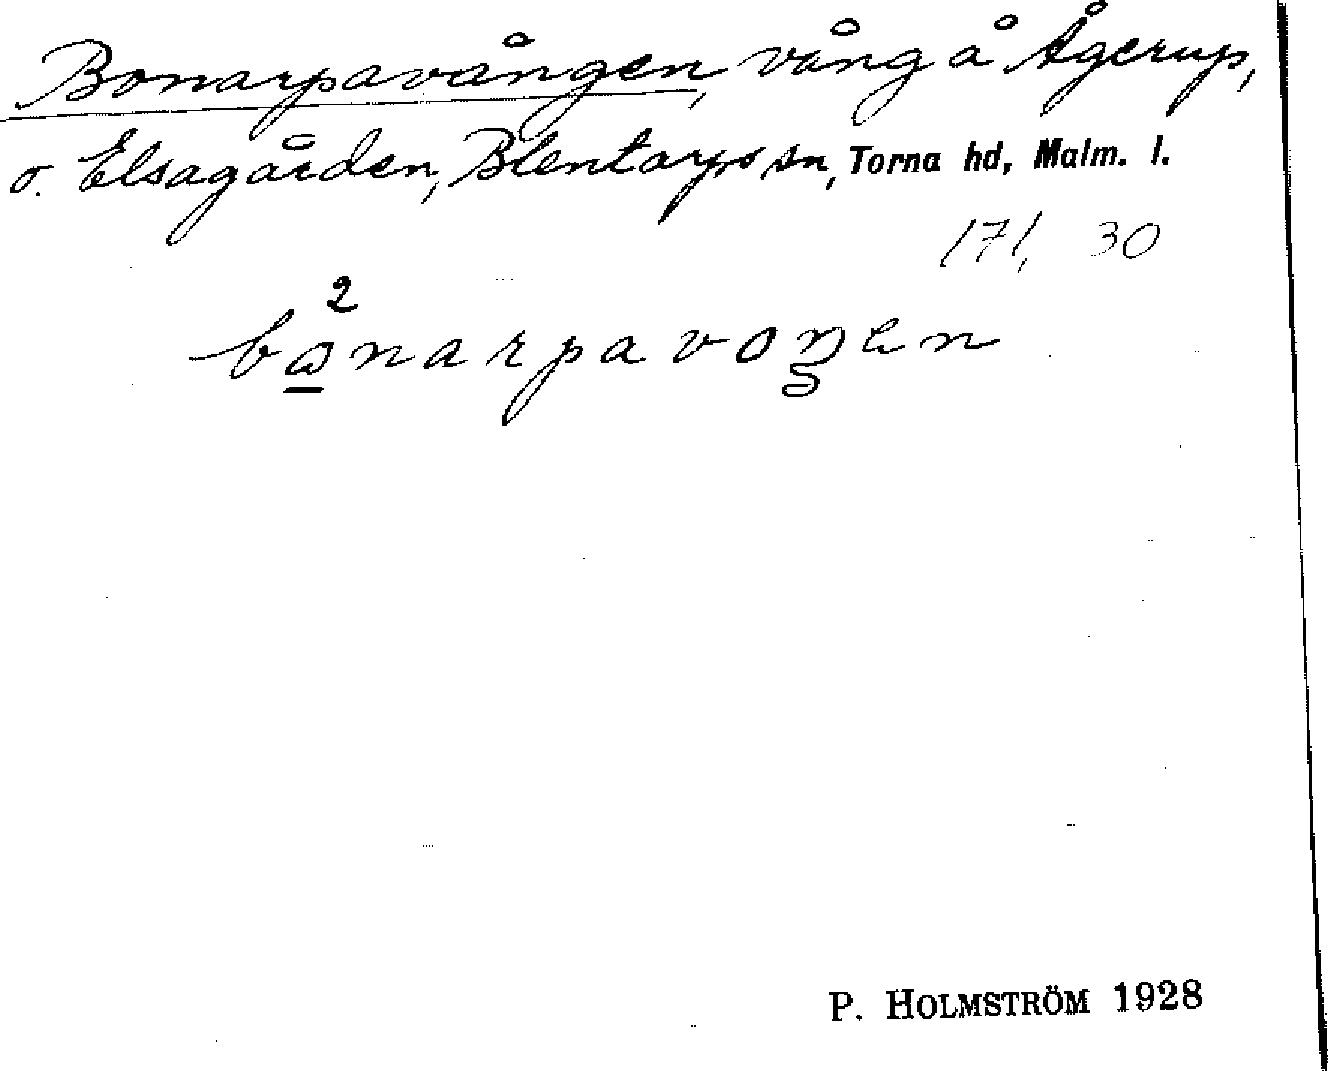 Bonarpavången, vång å Ågerup,
o. Elsagården, Blentarps sn, Torna hd, Malm. l.
171, 30
2
bωnarpavoŋen
P. HOLMSTRÖM 1928